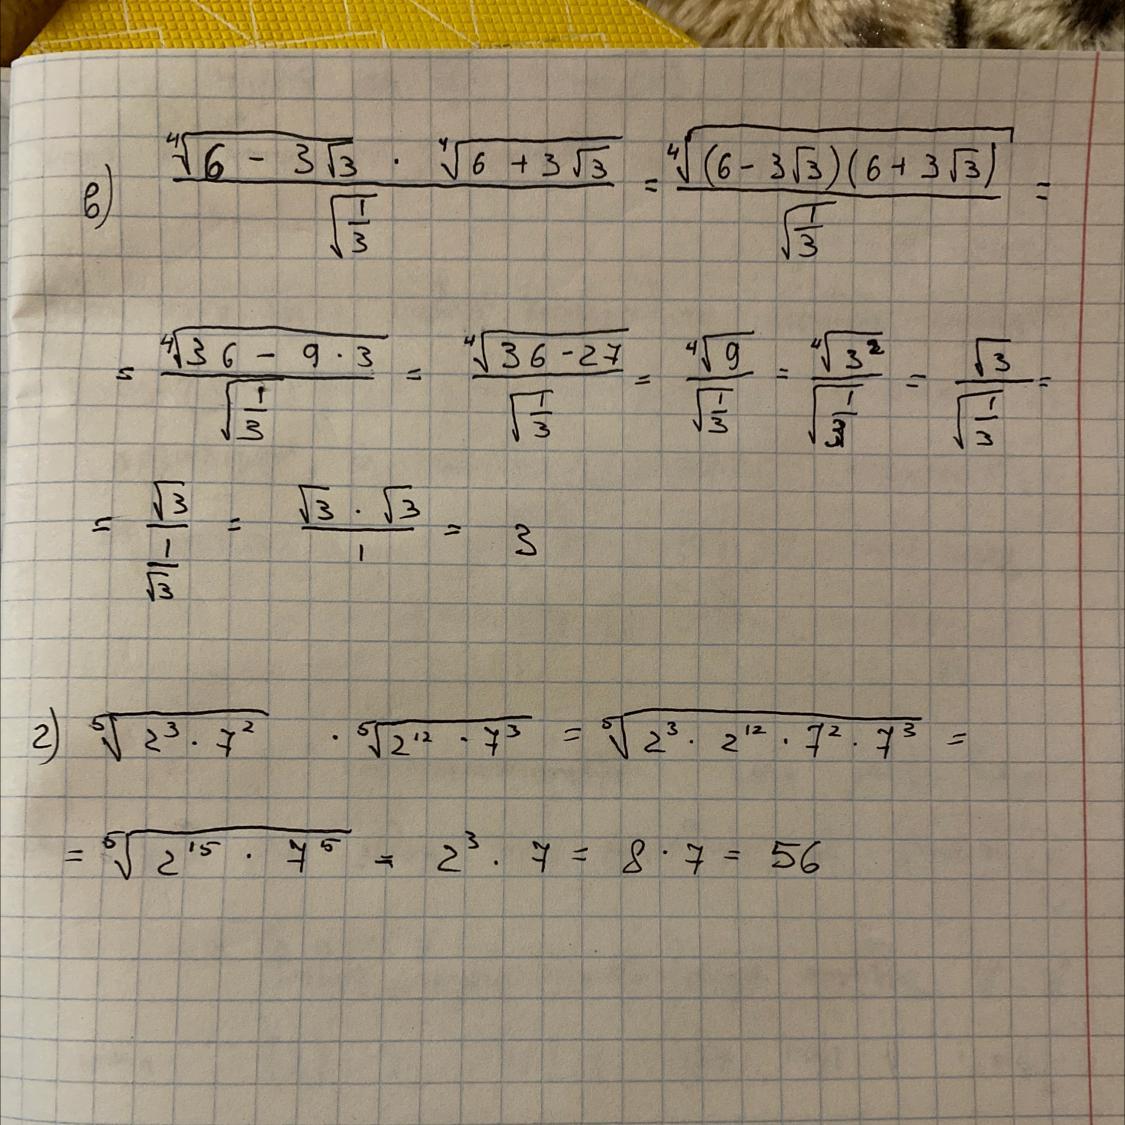 в) (⁴√(6 - 3√3) · ⁴√(6 + 3√3)) / √(1/3) = ⁴√((6 - 3√3)(6 + 3√3)) / √(1/3) =
= ⁴√(36 - 9 · 3) / √(1/3) = ⁴√(36 - 27) / √(1/3) = ⁴√9 / √(1/3) = ⁴√(3²) / √(1/3) = √3 / √(1/3) =
= √3 / (1/√3) = (√3 · √3) / 1 = 3
г) ⁵√(2³ · 7²) · ⁵√(2¹² · 7³) = ⁵√(2³ · 2¹² · 7² · 7³) =
= ⁵√(2¹⁵ · 7⁵) = 2³ · 7 = 8 · 7 = 56